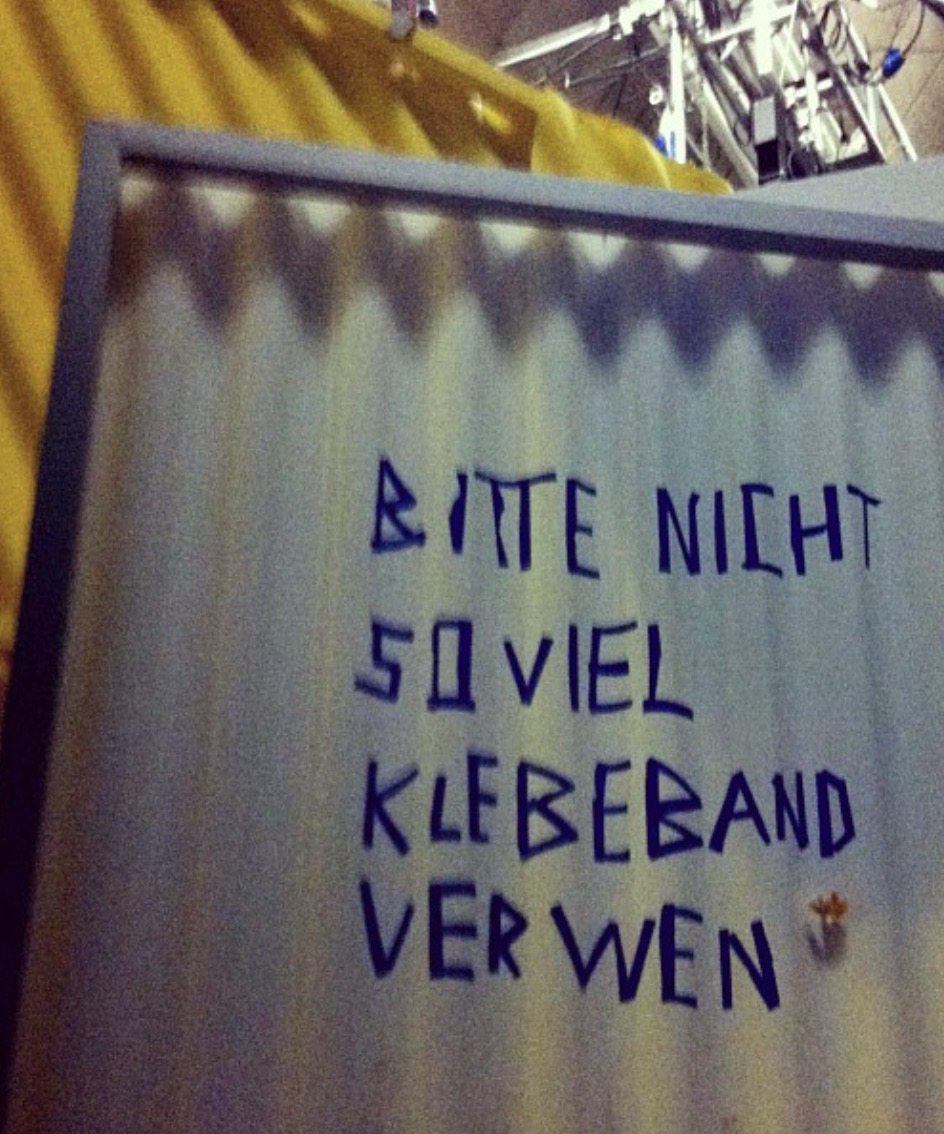 BITTE NICHT
SO VIEL
KLEBEBAND
VERWEN